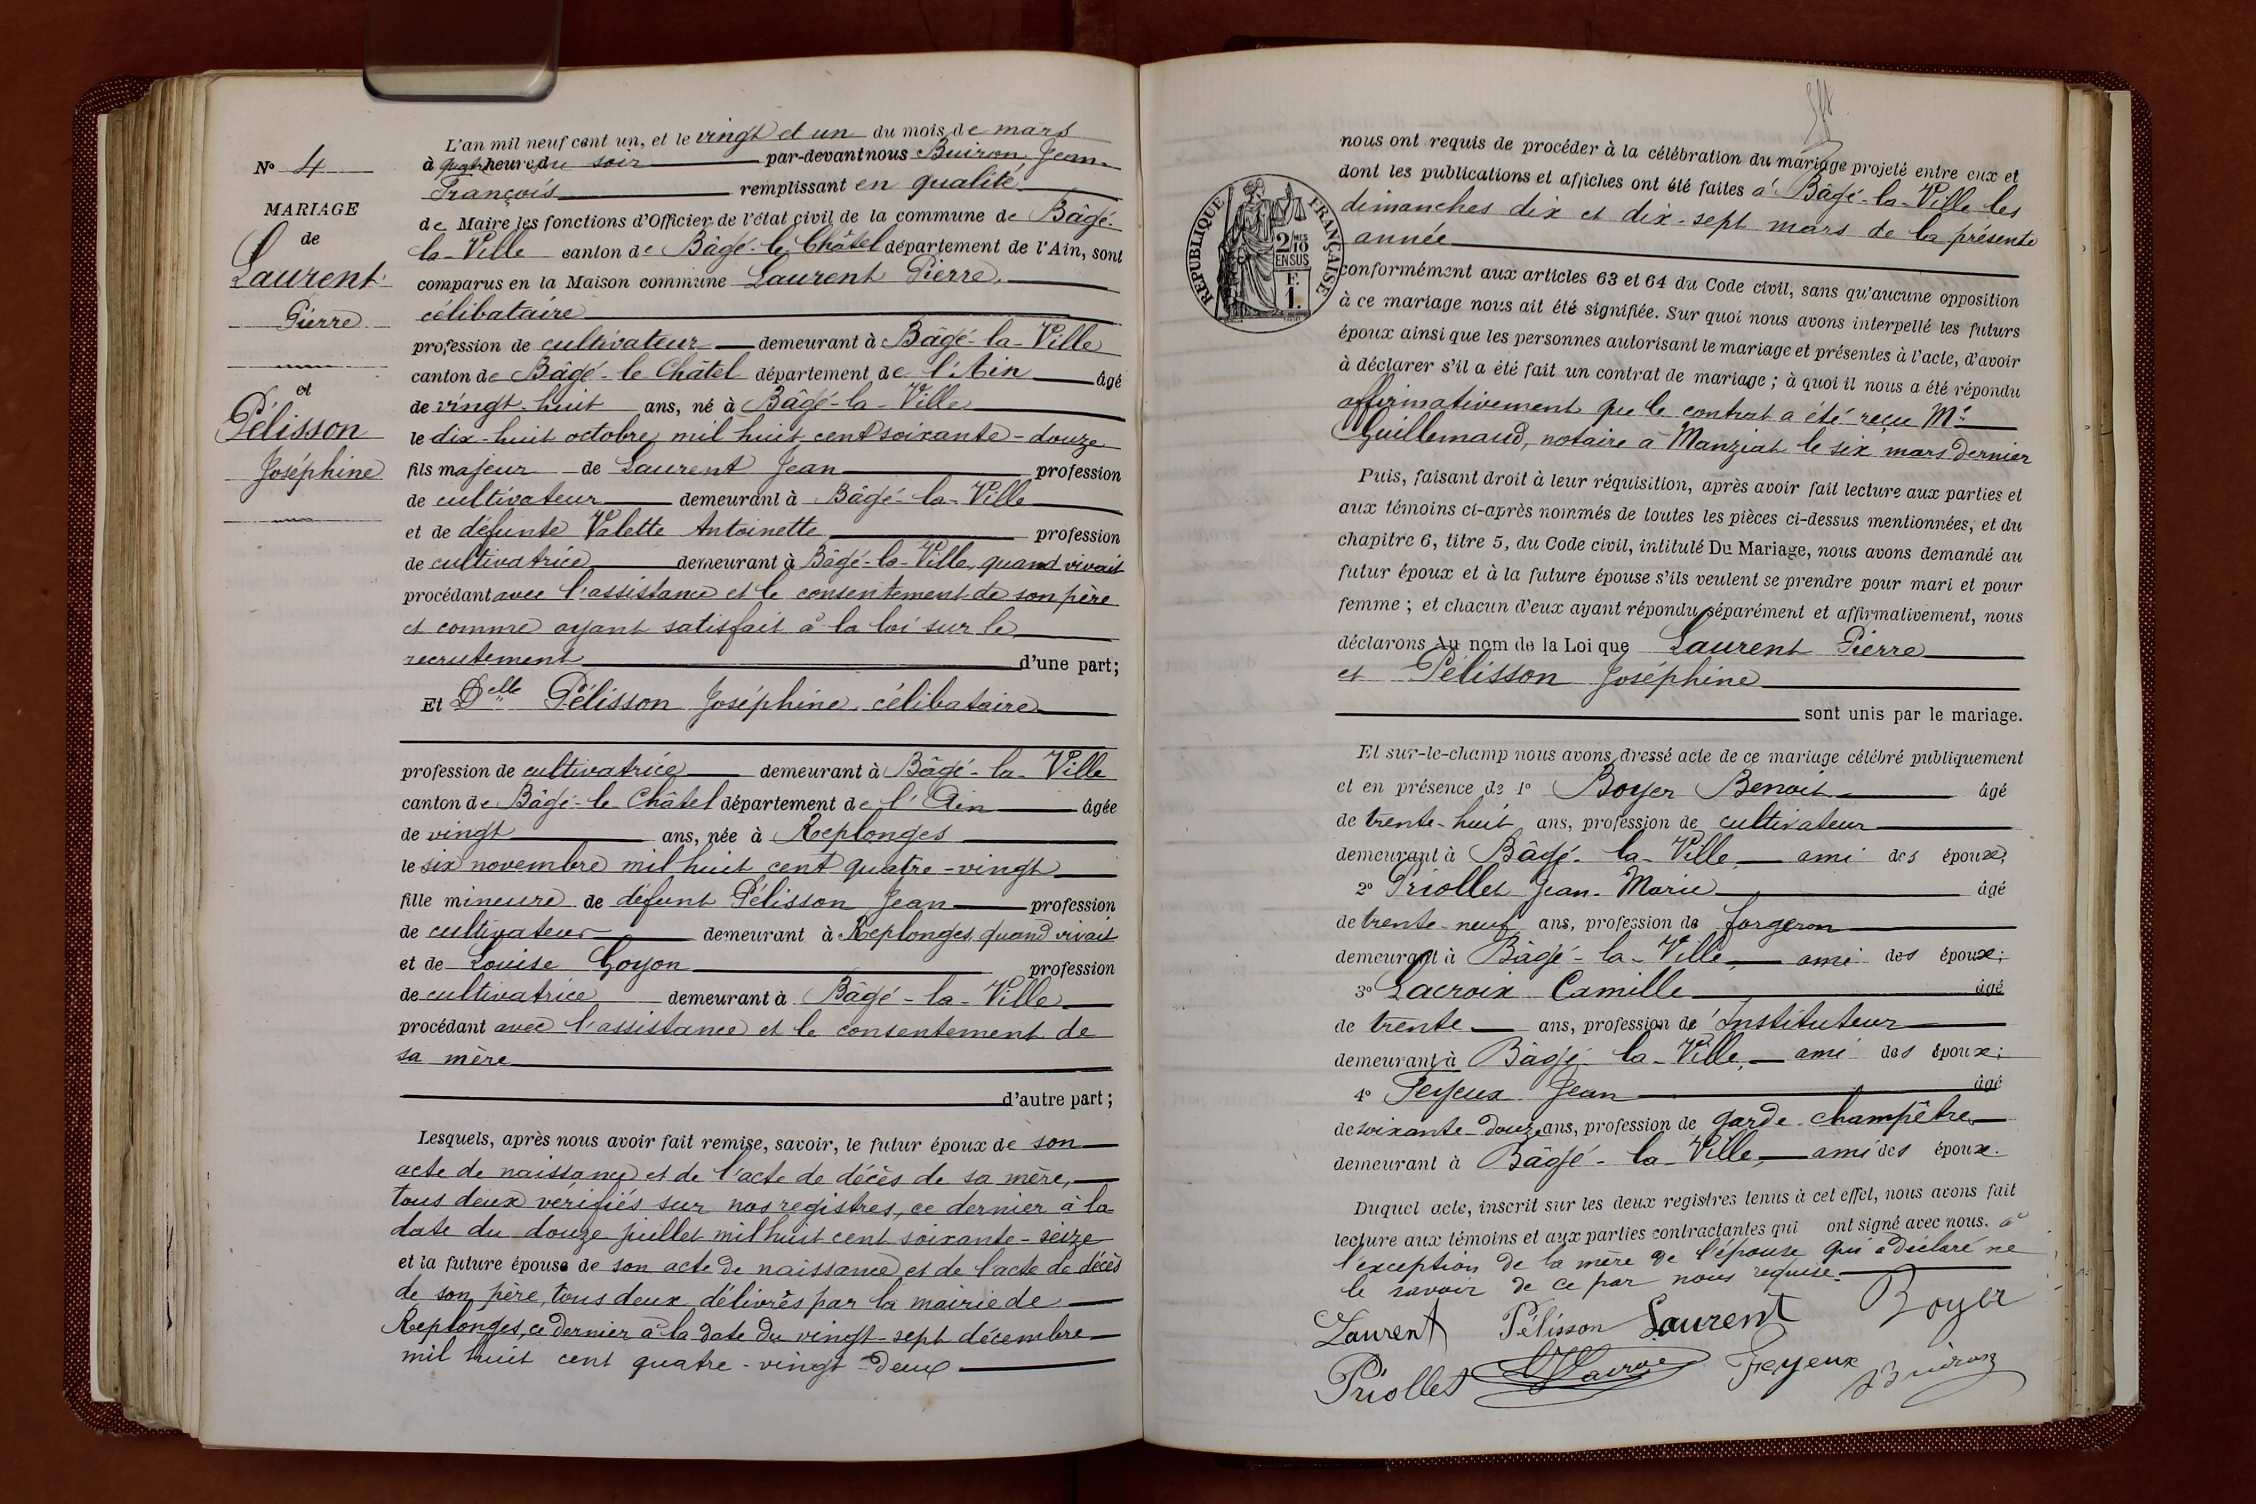 N° 4
MARIAGE
de
Laurent
Pierre
et
Pélisson
Joséphine
L'an mil neuf cent un, et le vingt et un du mois de mars
à quatre heures du soir par-devant nous Buiron, Jean-
François remplissant en qualité
de Maire les fonctions d'Officier de l'état civil de la commune de Bâgé-
la-Ville canton de Bâgé-le-Châtel département de l'Ain, sont
comparus en la Maison commune Laurent Pierre,
célibataire
profession de cultivateur demeurant à Bâgé-la-Ville
canton de Bâgé-le-Châtel département de l'Ain âgé
de vingt-huit ans, né à Bâgé-la-Ville
le dix-huit octobre mil huit cent soixante-douze
fils majeur de Laurent Jean profession
de cultivateur demeurant à Bâgé-la-Ville
et de défunte Valette Antoinette profession
de cultivatrice demeurant à Bâgé-la-Ville, quand vivait
procédant avec l'assistance et le consentement de son père
et comme ayant satisfait à la loi sur le
recrutement d'une part;
Et Delle Pélisson Joséphine, célibataire
profession de cultivatrice demeurant à Bâgé-la-Ville
canton de Bâgé-le-Châtel département de l'Ain âgée
de vingt ans, née à Replonges
le six novembre mil huit cent quatre-vingt
fille mineure de défunt Pélisson Jean profession
de cultivateur demeurant à Replonges, quand vivait
et de Louise Goyon profession
de cultivatrice demeurant à Bâgé-la-Ville
procédant avec l'assistance et le consentement de
sa mère
d'autre part;
Lesquels, après nous avoir fait remise, savoir, le futur époux de son
acte de naissance et de l'acte de décès de sa mère,
tous deux vérifiés sur nos registres, ce dernier à la
date du douze juillet mil huit cent soixante-seize
et la future épouse de son acte de naissance et de l'acte de décès
de son père, tous deux délivrés par la mairie de
Replonges, ce dernier à la date du vingt-sept décembre
mil huit cent quatre-vingt-deux
RÉPUBLIQUE FRANÇAISE
2/10 MES
EN SUS
F.
1.
nous ont requis de procéder à la célébration du mariage projeté entre eux et
dont les publications et affiches ont été faites à Bâgé-la-Ville les
dimanches dix et dix-sept mars de la présente
année
conformément aux articles 63 et 64 du Code civil, sans qu'aucune opposition
à ce mariage nous ait été signifiée. Sur quoi nous avons interpellé les futurs
époux ainsi que les personnes autorisant le mariage et présentes à l'acte, d'avoir
à déclarer s'il a été fait un contrat de mariage; à quoi il nous a été répondu
affirmativement que le contrat a été reçu Me
Guillemaud, notaire à Manziat le six mars dernier
Puis, faisant droit à leur réquisition, après avoir fait lecture aux parties et
aux témoins ci-après nommés de toutes les pièces ci-dessus mentionnées, et du
chapitre 6, titre 5, du Code civil, intitulé Du Mariage, nous avons demandé au
futur époux et à la future épouse s'ils veulent se prendre pour mari et pour
femme; et chacun d'eux ayant répondu séparément et affirmativement, nous
déclarons Au nom de la Loi que Laurent Pierre
et Pélisson Joséphine
sont unis par le mariage.
Et sur-le-champ nous avons dressé acte de ce mariage célébré publiquement
et en présence de 1° Boyer Benoit âgé
de trente-huit ans, profession de cultivateur
demeurant à Bâgé-la-Ville, ami des époux;
2° Priollet Jean-Marie âgé
de trente-neuf ans, profession de forgeron
demeurant à Bâgé-la-Ville, ami des époux;
3° Lacroix Camille âgé
de trente ans, profession de Instituteur
demeurant à Bâgé-la-Ville, ami des époux;
4° Feyeux Jean âgé
de soixante-douze ans, profession de garde-champêtre
demeurant à Bâgé-la-Ville, ami des époux.
Duquel acte, inscrit sur les deux registres tenus à cet effet, nous avons fait
lecture aux témoins et aux parties contractantes qui ont signé avec nous. à
l'exception de la mère de l'épouse qui a déclaré ne
le savoir de ce par nous requise.
Laurent Pélisson Laurent Boyer
Priollet Lacroix Feyeux Buiron